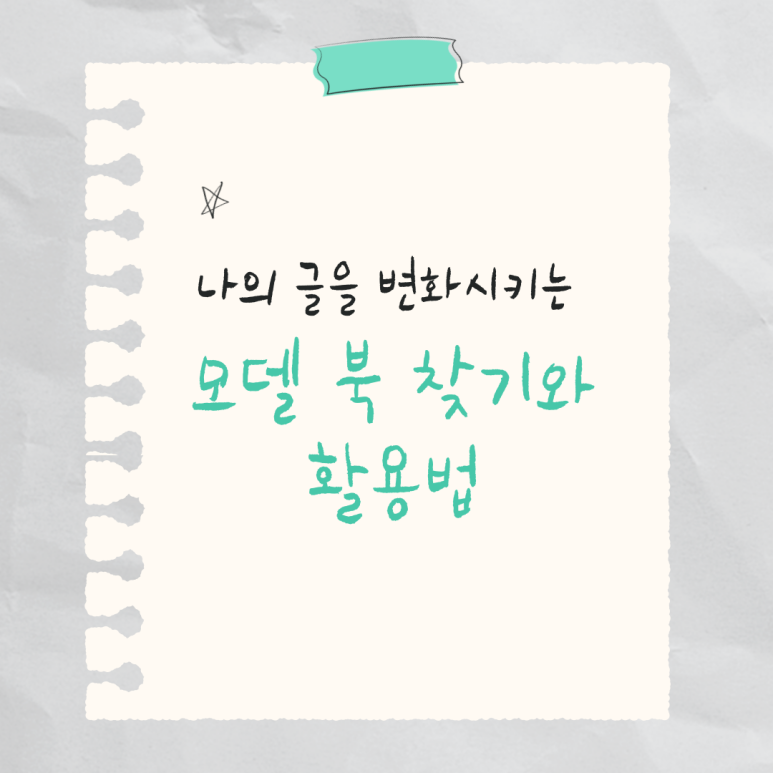 나의 글을 변화시키는
모델 북 찾기와
활용법